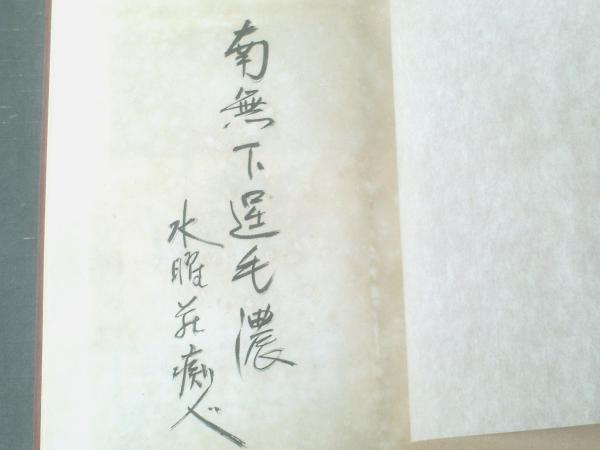 南無下逞毛濃
水曜荘痴人